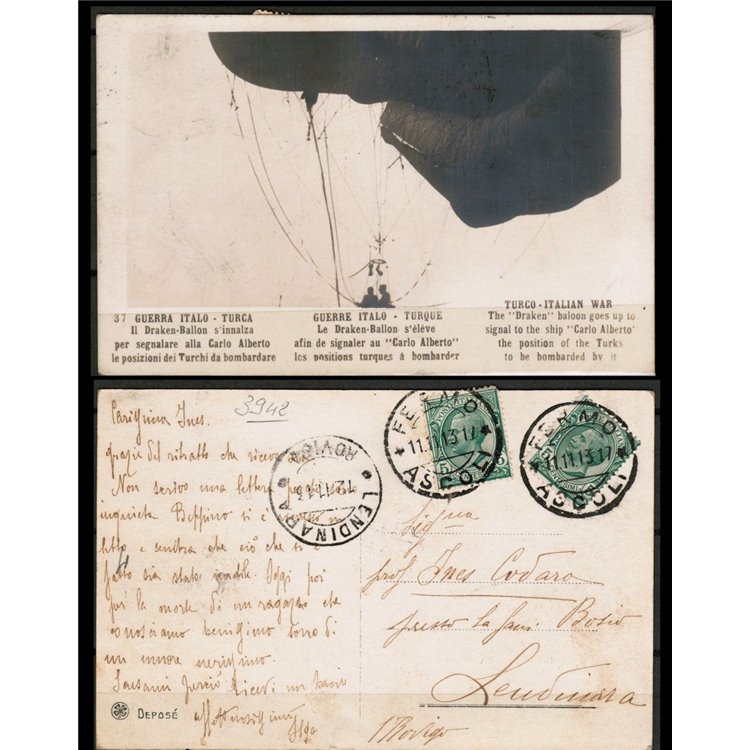 37 GUERRA ITALO - TURCA
Il Draken-Ballon s'innalza
per segnalare alla Carlo Alberto
le posizioni dei Turchi da bombardare
GUERRE ITALO - TURQUE
Le Draken-Ballon s'élève
afin de signaler au "Carlo Alberto"
les positions turques à bombarder
TURCO - ITALIAN WAR
The "Draken" baloon goes up to
signal to the ship "Carlo Alberto"
the position of the Turks
to be bombarded by it
3942
Carissima Ines.
grazie del ritratto che
Non scrivo una lettera
inquieta Beppino si è
letto e sembra che ciò che ti è
fatto sia stato inutile. Oggi poi
per la morte di un ragazzo che
conosciamo benissimo sono di
un umore nerissimo.
Ricevi un bacio
DEPOSÉ
ROVIGO
12.11.13
LENDINARA
FERMO
11.11.13.17
ASCOLI
FERMO
11.11.13.17
ASCOLI
prof Ines Codaro
presso la Bosio
Lendinara
Rovigo